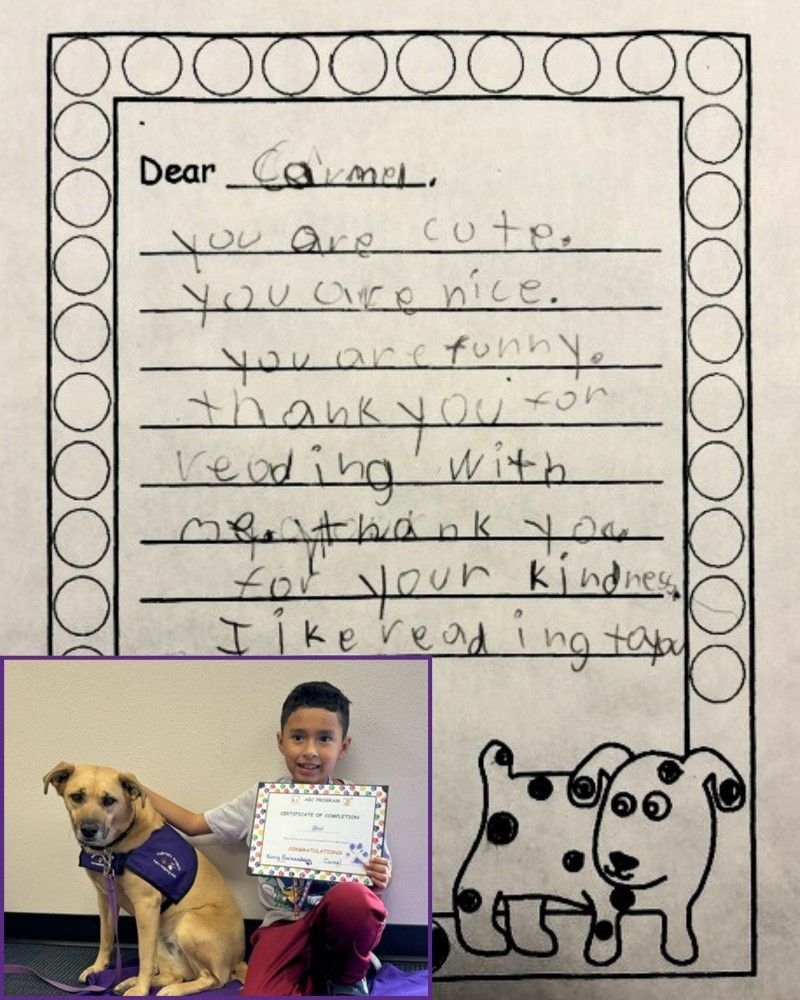 Dear Carmel,
you are cute.
you are nice.
you are funny.
thank you for
reading with
me. thank you
for your kindness.
I like reading to you
ABC PROGRAM
CERTIFICATE OF COMPLETION
CONGRATULATIONS!
Carmel